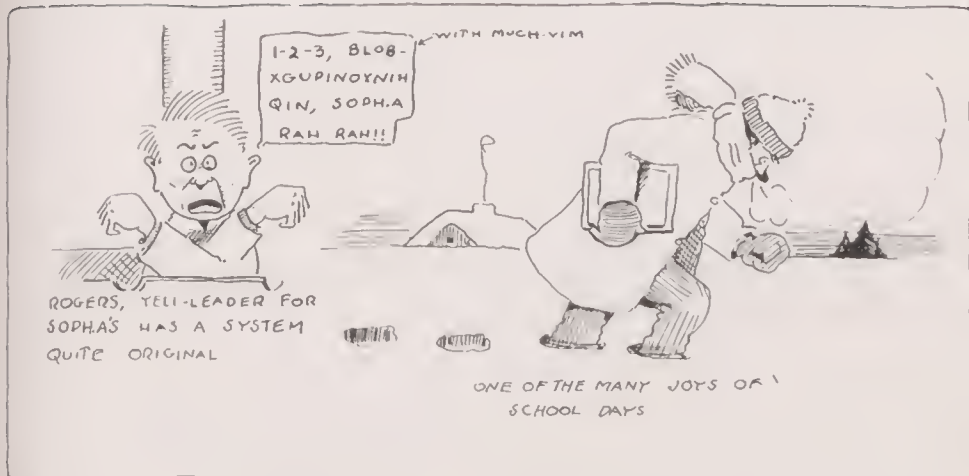 WITH MUCH VIM
1-2-3, BLOB-
XGUPINOYNIH
QIN, SOPH.A
RAH RAH!!
ROGERS, YELL-LEADER FOR
SOPH.A'S HAS A SYSTEM
QUITE ORIGINAL
ONE OF THE MANY JOYS OF
SCHOOL DAYS